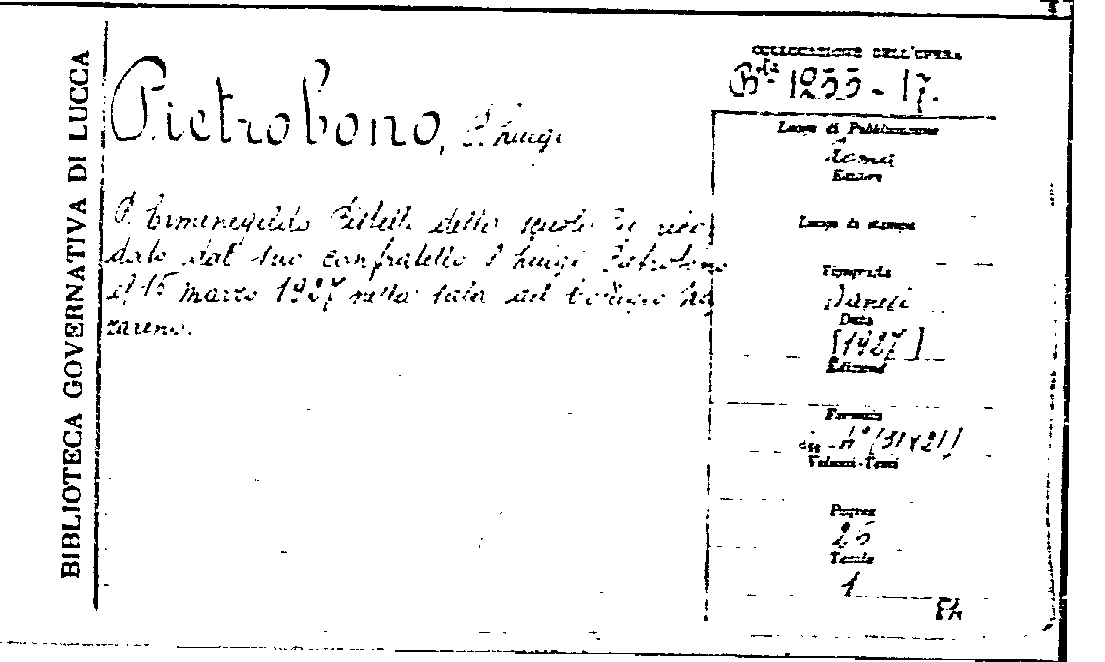 BIBLIOTECA GOVERNATIVA DI LUCCA
Pietrobono, P. Luigi
P. Ermenegildo Pistelli delle scuole Pie ricor
dato dal suo confratello P. Luigi Pietrobono
il 15 marzo 1927 nella sala del Collegio Na
zareno.
COLLOCAZIONE DELL'OPERA
B.ta 1255 - 17.
Luogo di Pubblicazione
Roma
Editore
Luogo di stampa
Tipografia
Danesi
Data
[1927]
Edizione
Formato
in-4° (31x21)
Volumi-Tomi
Pagine
25
Tavole
1